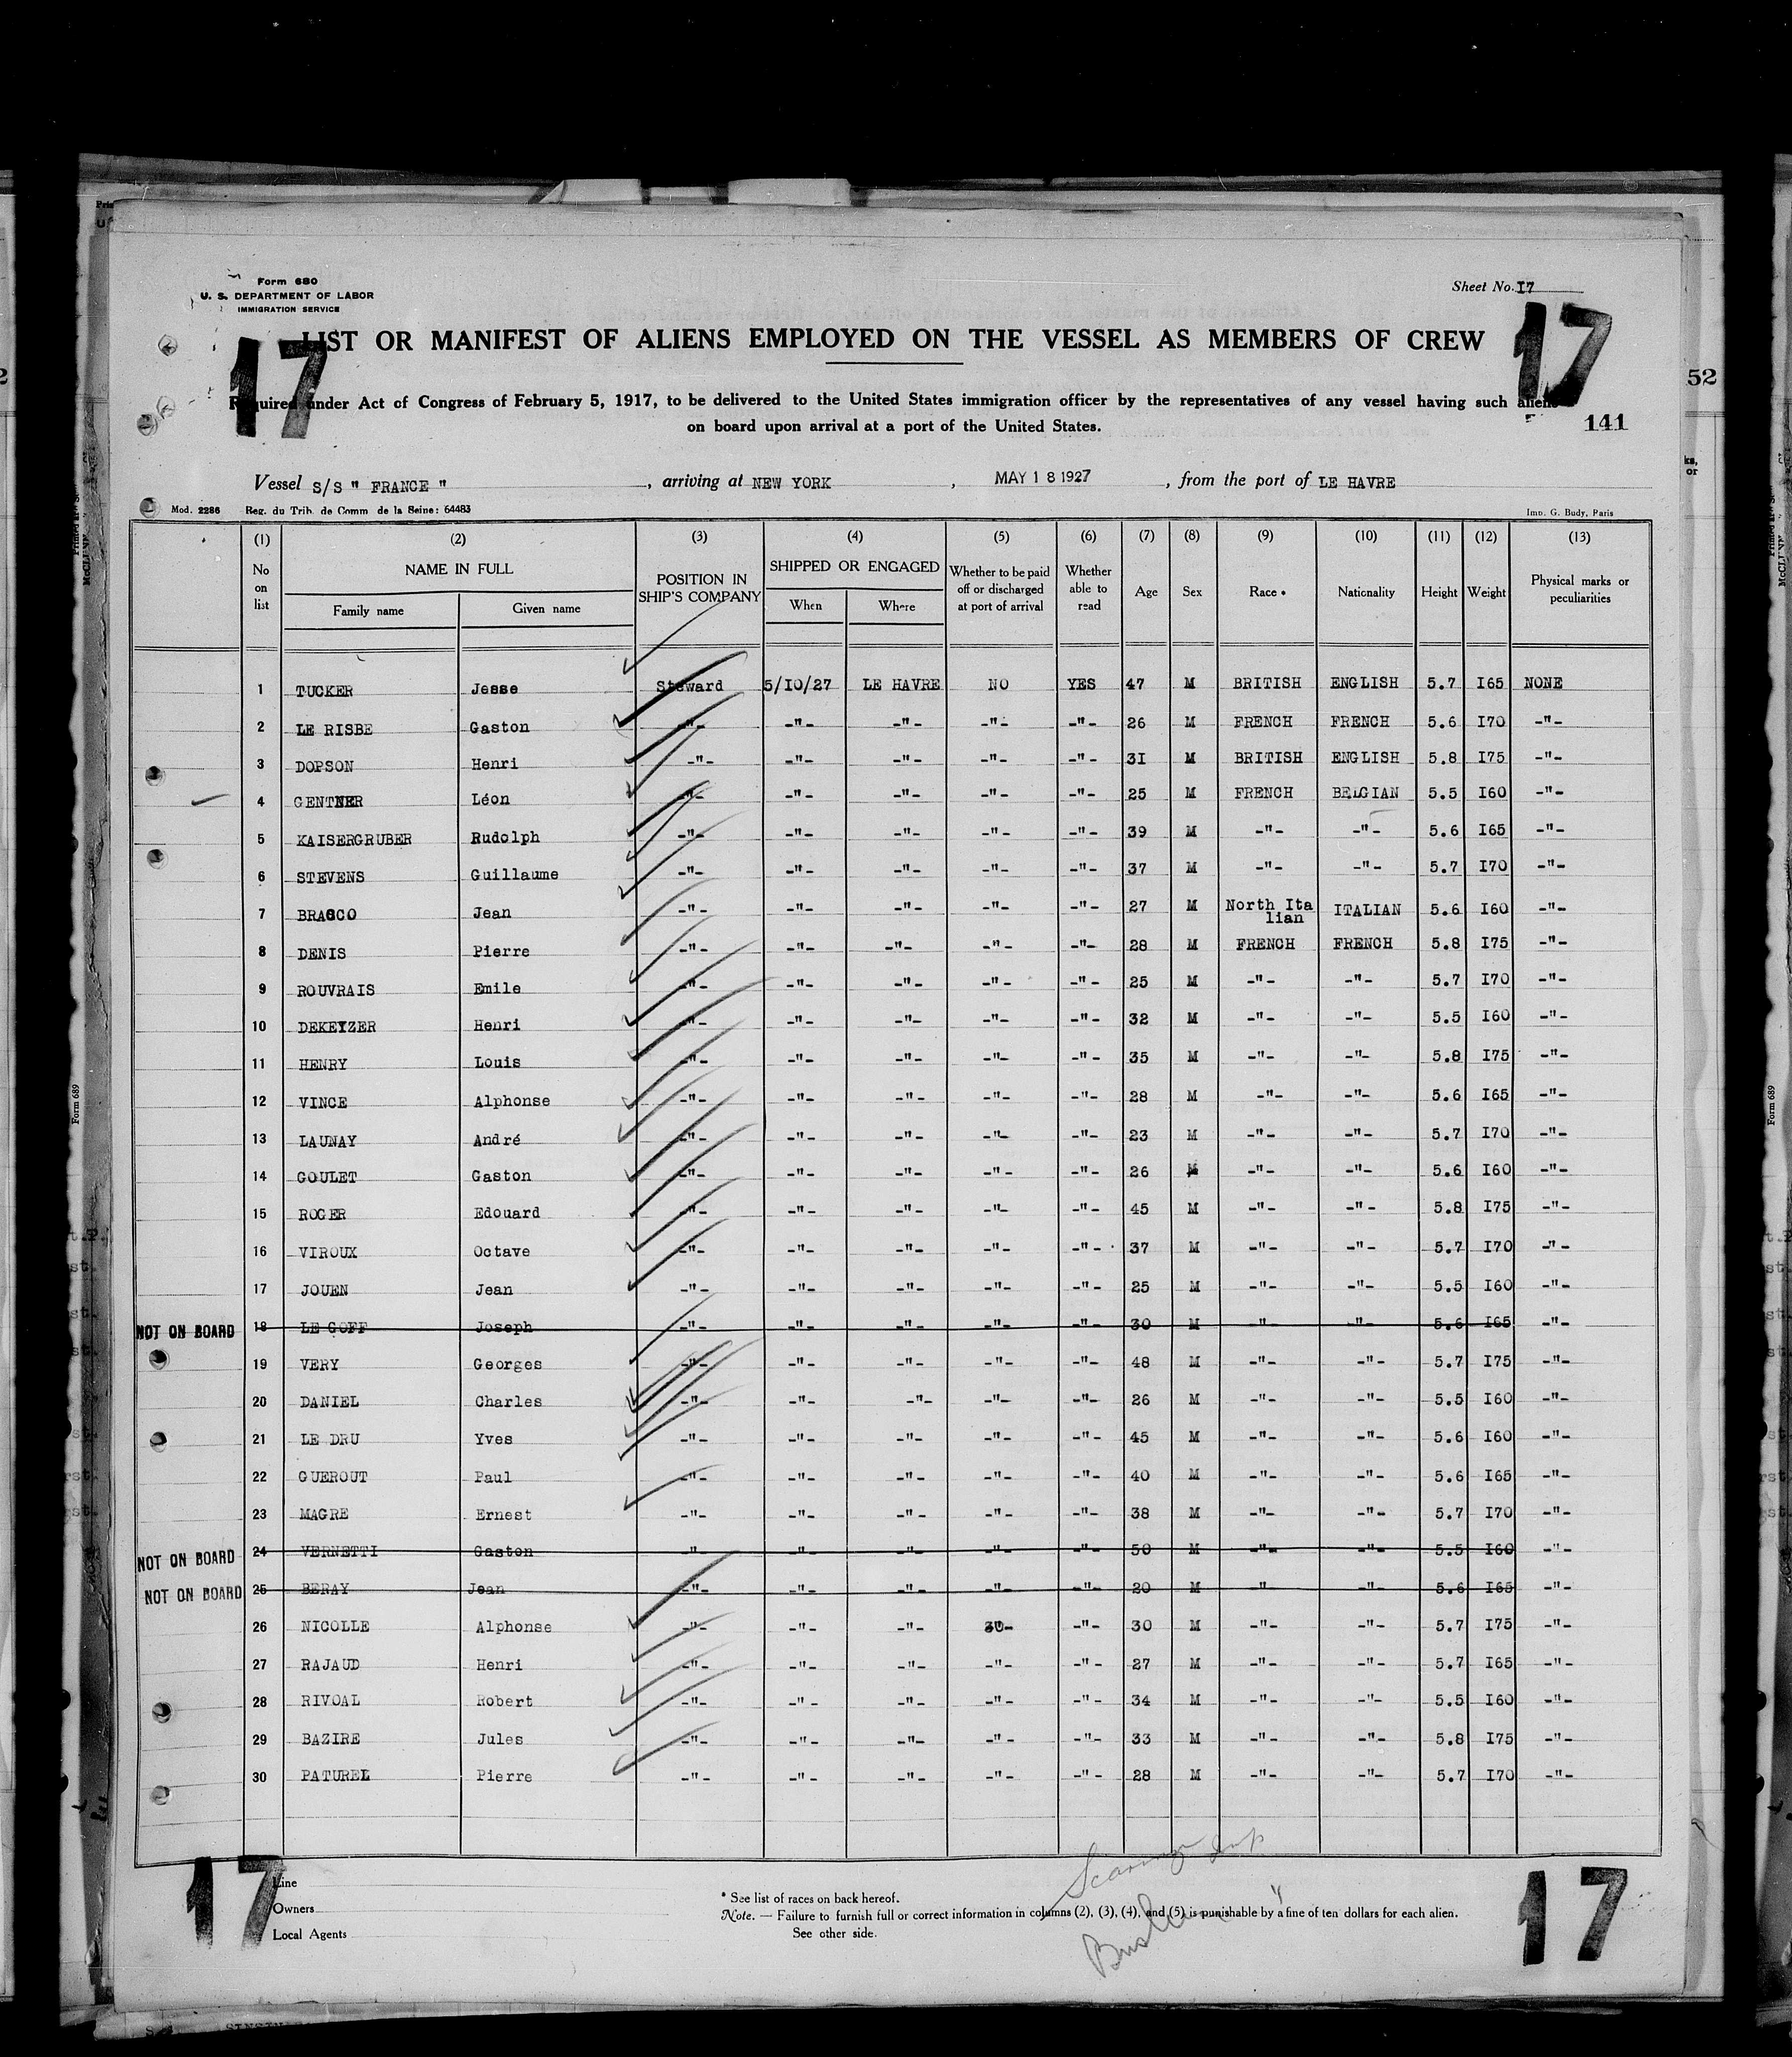 Form 680
U. S. DEPARTMENT OF LABOR
IMMIGRATION SERVICE
Sheet No. I7
17 17
LIST OR MANIFEST OF ALIENS EMPLOYED ON THE VESSEL AS MEMBERS OF CREW
Required under Act of Congress of February 5, 1917, to be delivered to the United States immigration officer by the representatives of any vessel having such aliens
on board upon arrival at a port of the United States.
141
52
Vessel S/S " FRANCE " , arriving at NEW YORK , MAY 18 1927 , from the port of LE HAVRE
Mod. 2286 Reg. du Trib. de Comm. de la Seine: 64483 Imp. G. Budy, Paris
(1) (2) (3) (4) (5) (6) (7) (8) (9) (10) (11) (12) (13)
No on list NAME IN FULL Family name Given name POSITION IN SHIP'S COMPANY SHIPPED OR ENGAGED When Where Whether to be paid off or discharged at port of arrival Whether able to read Age Sex Race * Nationality Height Weight Physical marks or peculiarities
1 TUCKER Jesse Steward 5/IO/27 LE HAVRE NO YES 47 M BRITISH ENGLISH 5.7 I65 NONE
2 LE RISBE Gaston -"- -"- -"- -"- -"- 26 M FRENCH FRENCH 5.6 I70 -"-
3 DOPSON Henri -"- -"- -"- -"- -"- 3I M BRITISH ENGLISH 5.8 I75 -"-
4 GENTNER Léon -"- -"- -"- -"- -"- 25 M FRENCH BELGIAN 5.5 I60 -"-
5 KAISERGRUBER Rudolph -"- -"- -"- -"- -"- 39 M -"- -"- 5.6 I65 -"-
6 STEVENS Guillaume -"- -"- -"- -"- -"- 37 M -"- -"- 5.7 I70 -"-
7 BRASCO Jean -"- -"- -"- -"- -"- 27 M North Ita lian ITALIAN 5.6 I60 -"-
8 DENIS Pierre -"- -"- -"- -"- -"- 28 M FRENCH FRENCH 5.8 I75 -"-
9 ROUVRAIS Emile -"- -"- -"- -"- -"- 25 M -"- -"- 5.7 I70 -"-
10 DEKEYZER Henri -"- -"- -"- -"- -"- 32 M -"- -"- 5.5 I60 -"-
11 HENRY Louis -"- -"- -"- -"- -"- 35 M -"- -"- 5.8 I75 -"-
12 VINCE Alphonse -"- -"- -"- -"- -"- 28 M -"- -"- 5.6 I65 -"-
13 LAUNAY André -"- -"- -"- -"- -"- 23 M -"- -"- 5.7 I70 -"-
14 GOULET Gaston -"- -"- -"- -"- -"- 26 M -"- -"- 5.6 I60 -"-
15 ROGER Edouard -"- -"- -"- -"- -"- 45 M -"- -"- 5.8 I75 -"-
16 VIROUX Octave -"- -"- -"- -"- -"- 37 M -"- -"- 5.7 I70 -"-
17 JOUEN Jean -"- -"- -"- -"- -"- 25 M -"- -"- 5.5 I60 -"-
NOT ON BOARD 18 LE GOFF Joseph -"- -"- -"- -"- -"- 30 M -"- -"- 5.6 I65 -"-
19 VERY Georges -"- -"- -"- -"- -"- 48 M -"- -"- 5.7 I75 -"-
20 DANIEL Charles -"- -"- -"- -"- -"- 26 M -"- -"- 5.5 I60 -"-
21 LE DRU Yves -"- -"- -"- -"- -"- 45 M -"- -"- 5.6 I60 -"-
22 GUEROUT Paul -"- -"- -"- -"- -"- 40 M -"- -"- 5.6 I65 -"-
23 MAGRE Ernest -"- -"- -"- -"- -"- 38 M -"- -"- 5.7 I70 -"-
NOT ON BOARD 24 VERNETTI Gaston -"- -"- -"- -"- -"- 50 M -"- -"- 5.5 I60 -"-
NOT ON BOARD 25 BERAY Jean -"- -"- -"- -"- -"- 20 M -"- -"- 5.6 I65 -"-
26 NICOLLE Alphonse -"- -"- -"- 30- -"- 30 M -"- -"- 5.7 I75 -"-
27 RAJAUD Henri -"- -"- -"- -"- -"- 27 M -"- -"- 5.7 I65 -"-
28 RIVOAL Robert -"- -"- -"- -"- -"- 34 M -"- -"- 5.5 I60 -"-
29 BAZIRE Jules -"- -"- -"- -"- -"- 33 M -"- -"- 5.8 I75 -"-
30 PATUREL Pierre -"- -"- -"- -"- -"- 28 M -"- -"- 5.7 I70 -"-
17 17
Line
Owners
Local Agents
* See list of races on back hereof.
Note. — Failure to furnish full or correct information in columns (2), (3), (4), and (5) is punishable by a fine of ten dollars for each alien.
See other side.
Form 689
Form 689